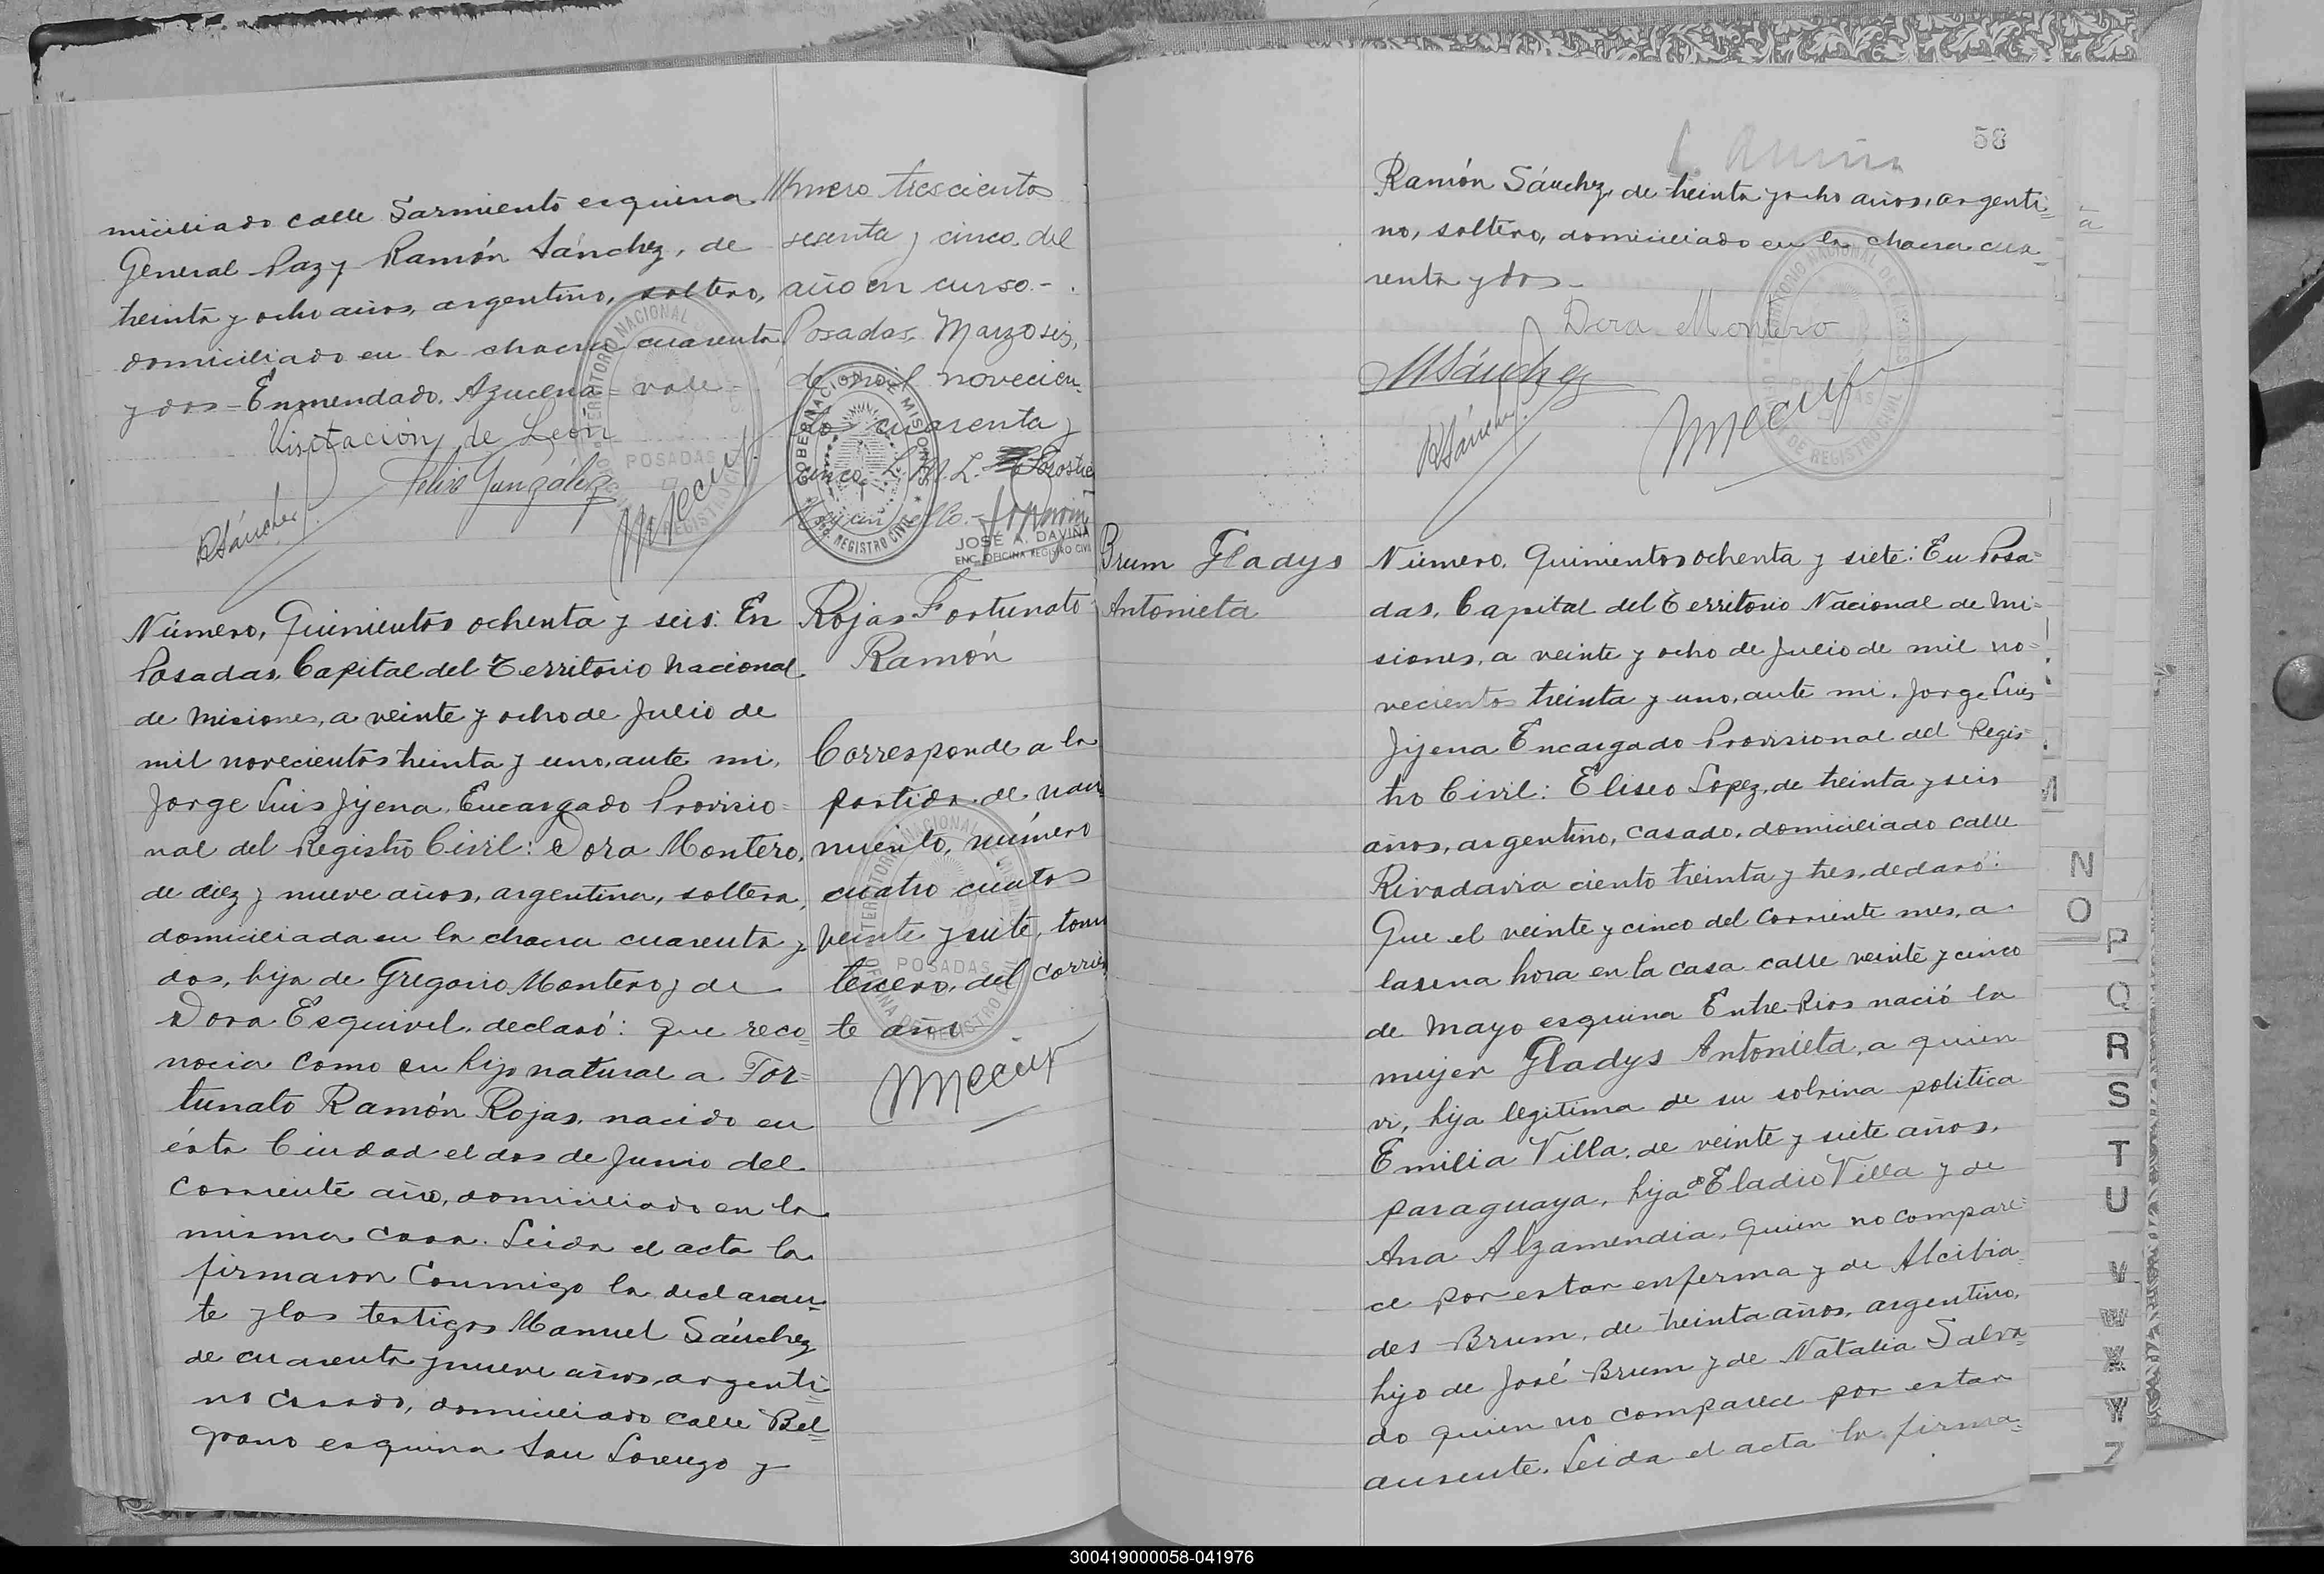 miciliado calle Sarmiento esquina
General Paz y Ramón Sánchez, de
treinta y ocho años, argentino, soltero,
domiciliado en la chacra cuarenta
y dos = Enmendado. Azucena = vale -
Visitación de León
Felix González
RSánchez
///mero trescientos
sesenta y cinco, del
año en curso. -
Posadas, Marzo seis,
de mil novecien-
to cuarenta y
cinco. L. M. L.
JOSÉ A. DAVIÑA
ENC. OFICINA REGISTRO CIVIL
GOBERNACION DE MISIONES
REGISTRO CIVIL
TERRITORIO NACIONAL
POSADAS
Número, Quinientos ochenta y seis: En
Posadas, Capital del Territorio Nacional
de Misiones, a veinte y ocho de Julio de
mil novecientos treinta y uno, ante mi,
Jorge Luis Jijena, Encargado Provisio=
nal del Registro Civil: Dora Montero,
de diez y nueve años, argentina, soltera,
domiciliada en la chacra cuarenta y
dos, hija de Gregorio Montero y de
Dora Esquivel, declaró: Que reco=
nocia como su hijo natural a For=
tunato Ramón Rojas, nacido en
ésta Ciudad el dos de Junio del
corriente año, domiciliado en la
misma casa. Leida el acta la
firmaron conmigo la declaran=
te y los testigos Manuel Sánchez
de cuarenta y nueve años, argenti=
no casado, domiciliado calle Bel=
grano esquina San Lorenzo y
Rojas Fortunato
Ramón
Corresponde a la
partida de naci
miento, número
cuatro cientos
veinte y siete, tomo
tercero, del corrien
te año
TERRITORIO NACIONAL
POSADAS
OFICINA DE REGISTRO CIVIL
58
Ramón Sánchez, de treinta y ocho años, argenti=
no, soltero, domiciliado en la chacra cua=
renta y dos -
Dora Montero
MSánchez
RSánchez
TERRITORIO NACIONAL DE MISIONES
DE REGISTRO CIVIL
Brum Gladys
Antonieta
Número, Quinientos ochenta y siete: En Posa=
das, Capital del Territorio Nacional de Mi=
siones, a veinte y ocho de Julio de mil no=
vecientos treinta y uno, ante mi, Jorge Luis
Jijena Encargado Provisional del Regis=
tro Civil: Eliseo Lopez, de treinta y seis
años, argentino, casado, domiciliado calle
Rivadavia ciento treinta y tres, declaró:
Que el veinte y cinco del corriente mes, a
la una hora en la casa calle veinte y cinco
de Mayo esquina Entre-Rios nació la
mujer Gladys Antonieta, a quien
vi, hija legitima de su sobrina politica
Emilia Villa, de veinte y siete años,
paraguaya, hija de Eladio Villa y de
Ana Alzamendia, quien no compare=
ce por estar enferma y de Alcibia
des Brum, de treinta años, argentino,
hijo de José Brum y de Natalia Salva
do quien no comparece por estar
ausente. Leida el acta la firma=
N
O
P
Q
R
S
T
U
V
W
X
Y
Z
300419000058-041976